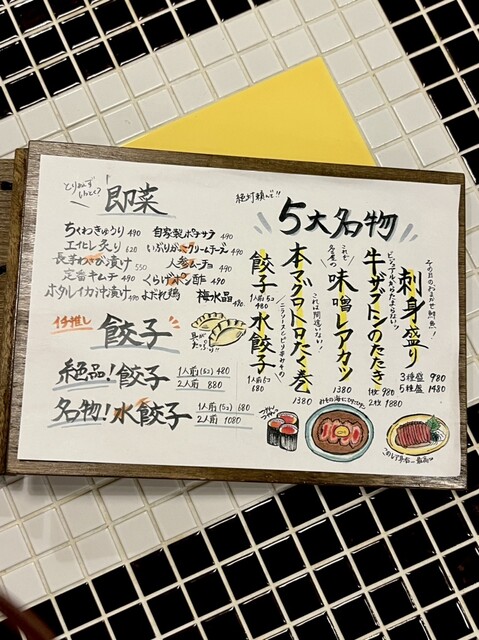 とりあえずいっとく?
即菜
ちくわきゅうり 490
エイヒレ炙り 620
長芋わさび漬け 550
定番キムチ 490
ホタルイカ沖漬け 490
自家製ポテサラ 490
いぶりがっこクリームチーズ 490
人参ムーチョ 490
くらげポン酢 490
よだれ鶏
梅水晶 490
イチ推し
餃子
具がたっぷり!!
絶品!餃子
1人前(5コ) 480
2人前 880
名物!水餃子
1人前(5コ) 680
2人前 1080
絶対頼んで!!
5大名物
その日のおまかせ鮮魚!
刺身盛り
3種盛 980
5種盛 1480
牛ザブトンのたたき
1枚 980
2枚 1880
これぞ名古屋の
味噌レアカツ
1380
これは間違いない!
本マグロトロたく巻
1380
餃子
1人前 5コ 480
水餃子
1人前 5コ 680